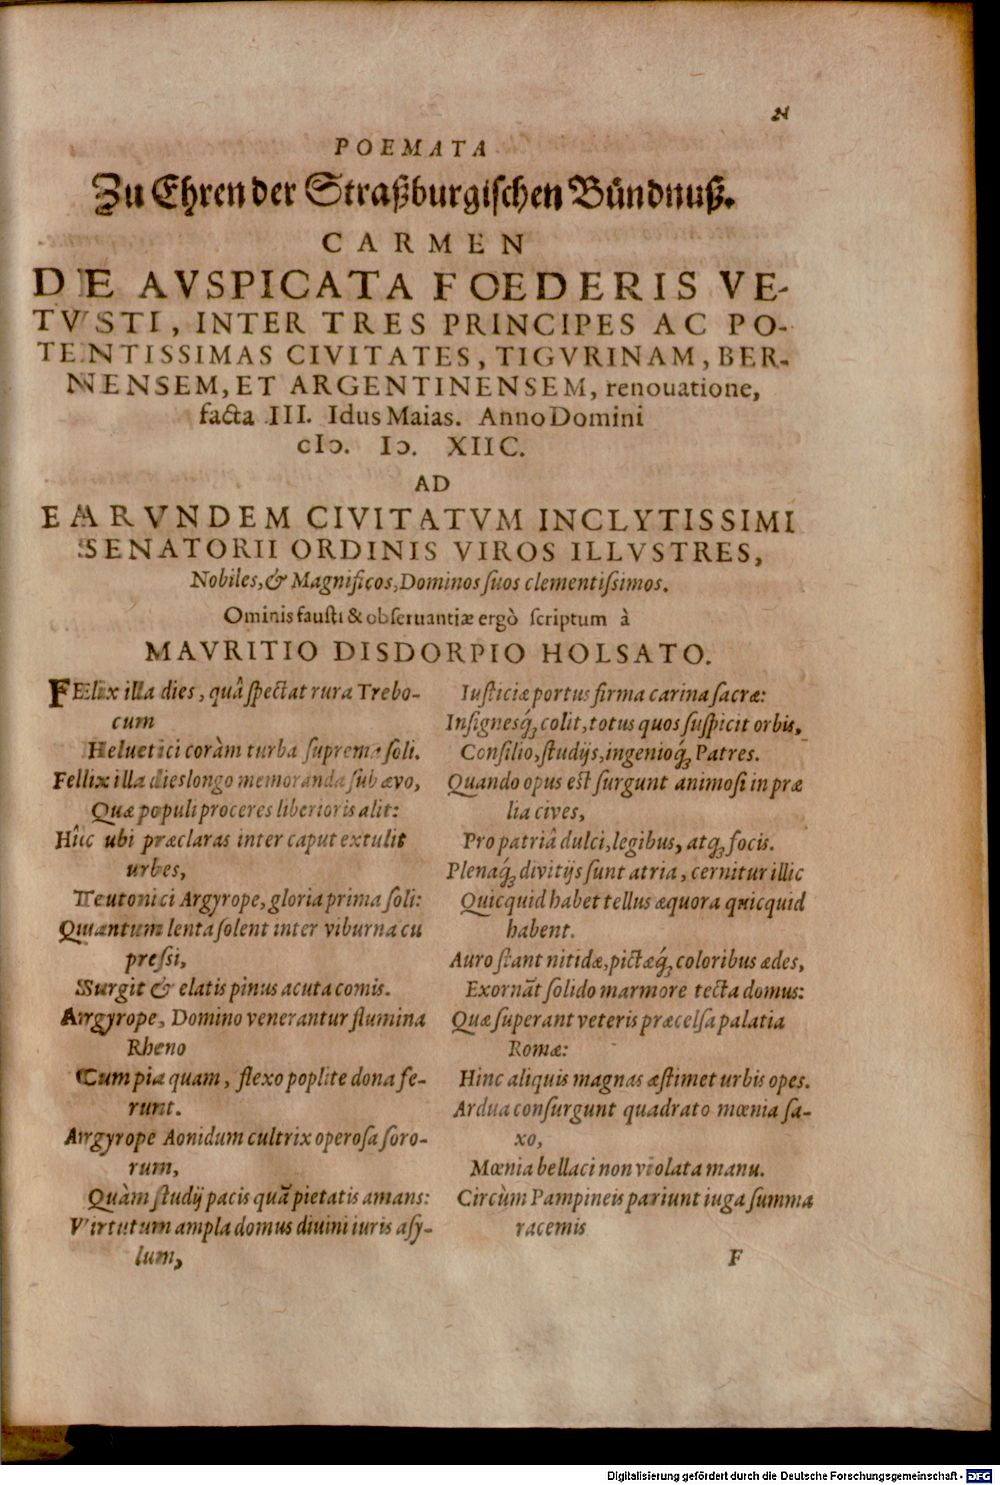 21
POEMATA
Zu Ehren der Straßburgischen Bündnuß.
CARMEN
DE AVSPICATA FOEDERIS VE-
TVSTI, INTER TRES PRINCIPES AC PO-
TENTISSIMAS CIVITATES, TIGVRINAM, BER-
NENSEM, ET ARGENTINENSEM, renouatione,
facta III. Idus Maias. Anno Domini
cIɔ. Iɔ. XIIC.
AD
EARVNDEM CIVITATVM INCLYTISSIMI
SENATORII ORDINIS VIROS ILLVSTRES,
Nobiles, & Magnificos, Dominos ſuos clementiſsimos.
Ominis fauſti & obſeruantiæ ergò ſcriptum à
MAVRITIO DISDORPIO HOLSATO.
FElix illa dies, quâ ſpectat rura Trebo-
cum
Heluetici coràm turba ſuprema ſoli.
Fellix illa dies longo memoranda ſub ævo,
Quæ populi proceres liberioris alit:
Hîic ubi præclaras inter caput extulit
urbes,
Teutonici Argyrope, gloria prima ſoli:
Quantum lenta ſolent inter viburna cu
preſsi,
Surgit & elatis pinus acuta comis.
Argyrope, Domino venerantur flumina
Rheno
Cum pia quam, flexo poplite dona fe-
runt.
Argyrope Aonidum cultrix operoſa ſoro-
rum,
Quàm ſtudij pacis quā pietatis amans:
Virtutum ampla domus diuini iuris aſy-
lum,
Iuſticiæ portus firma carina ſacræ:
Inſignesq́ꝫ colit, totus quos ſuſpicit orbis,
Conſilio, ſtudijs, ingenioq́ꝫ Patres.
Quando opus eſt ſurgunt animoſi in præ
lia cives,
Pro patriâ dulci, legibus, atqꝫ focis.
Plenaq́ꝫ divitijs ſunt atria, cernitur illic
Quicquid habet tellus æquora quicquid
habent.
Auro ſtant nitidæ, pictæq́ꝫ coloribus ædes,
Exornāt ſolido marmore tecta domus:
Quæ ſuperant veteris præcelſa palatia
Romæ:
Hinc aliquis magnas æſtimet urbis opes.
Ardua conſurgunt quadrato mœnia ſa-
xo,
Mœnia bellaci non violata manu.
Circùm Pampineis pariunt iuga ſumma
racemis
F
Digitalisierung gefördert durch die Deutsche Forschungsgemeinschaft - DFG